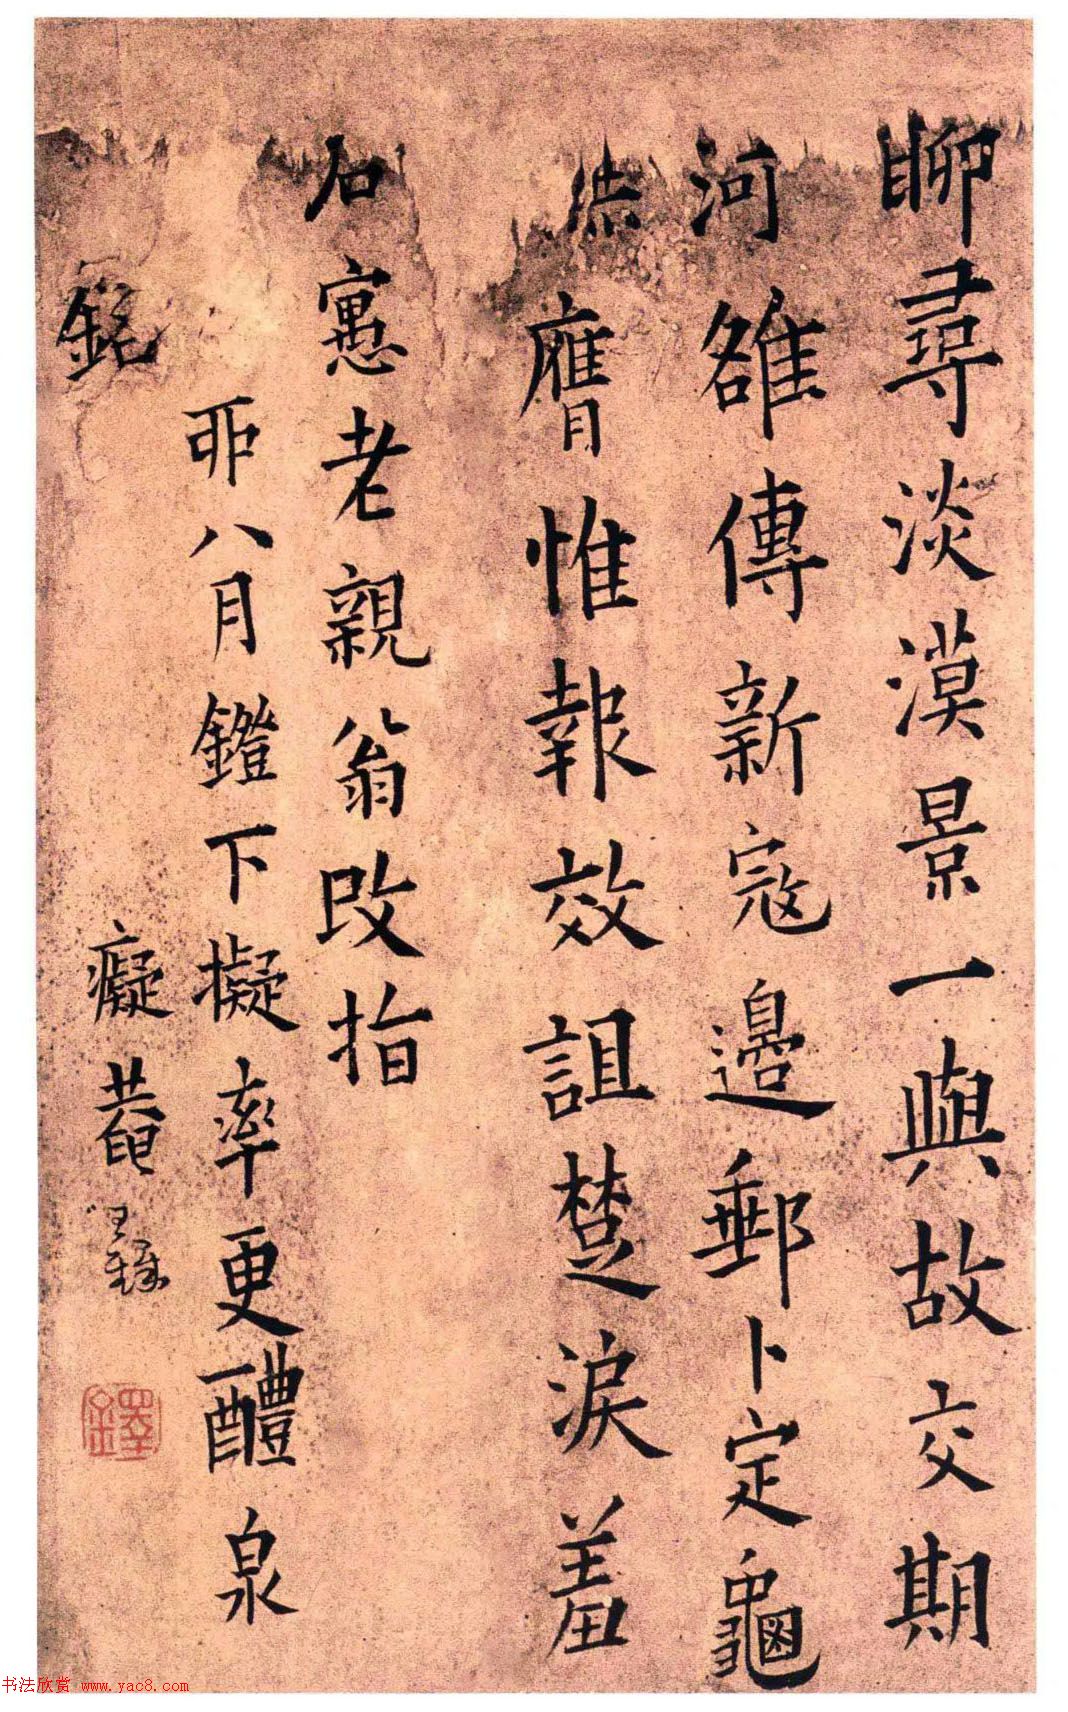 聊尋淡漠景一與故交期
河雒傳新寇邊郵卜定龜
膺惟報效詛楚淚羞
石寓老親翁改指
丣八月鐙下擬率更醴泉
銘
癡菴王鐸
鐸
书法欣赏 www.yac8.com